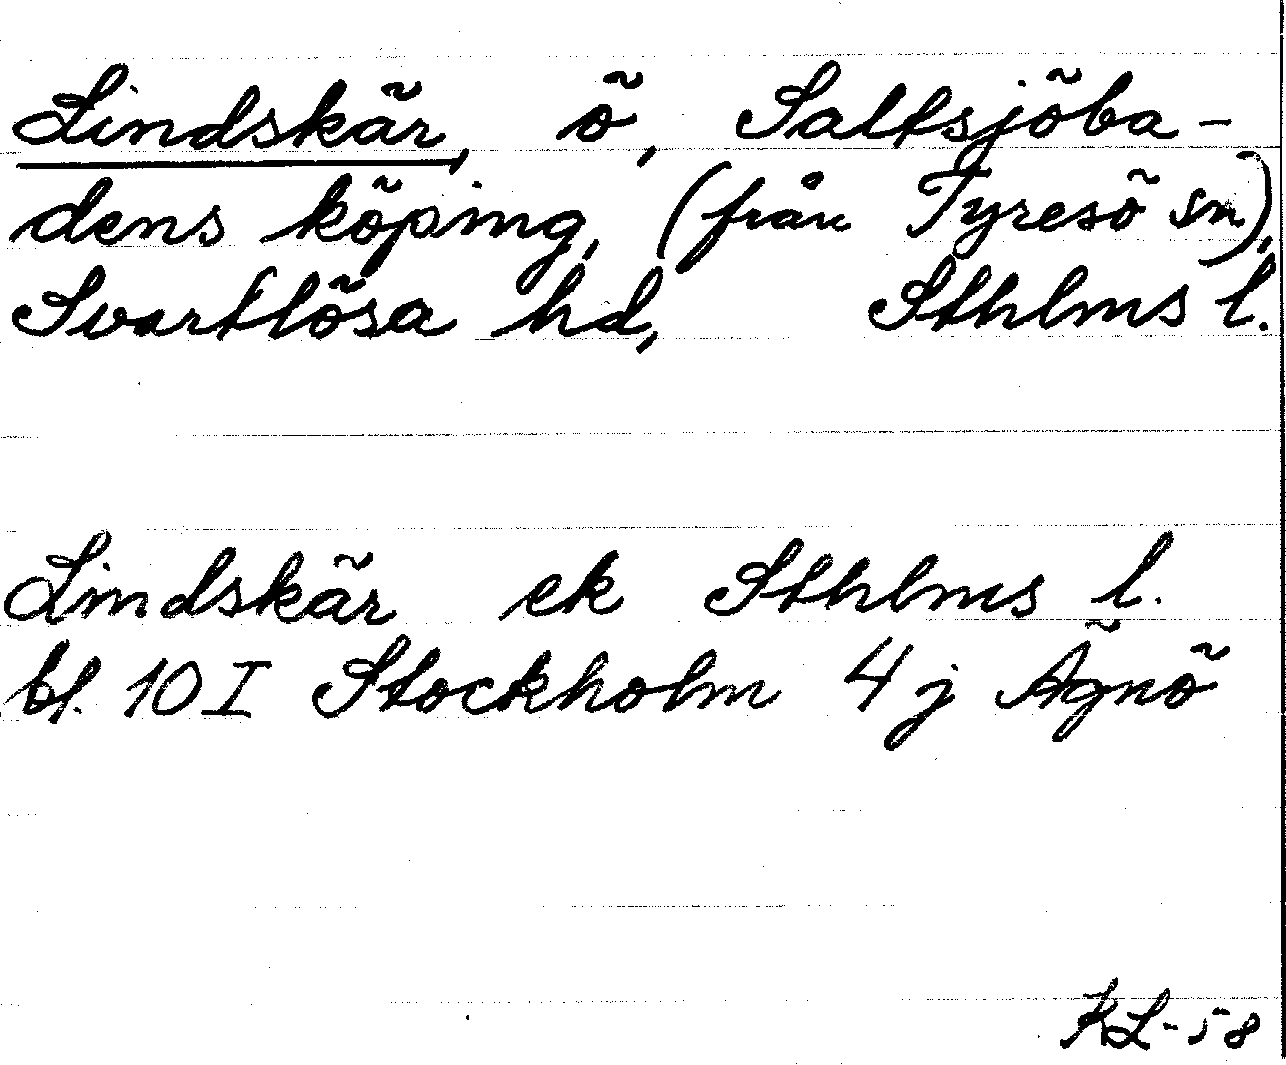 Lindskär, ö, Saltsjöba-
dens köping, (från Tyresö sn),
Svartlösa hd, Sthlms l.
Lindskär ek Sthlms l.
bl. 10 I Stockholm 4 j Ägnö
KL-58